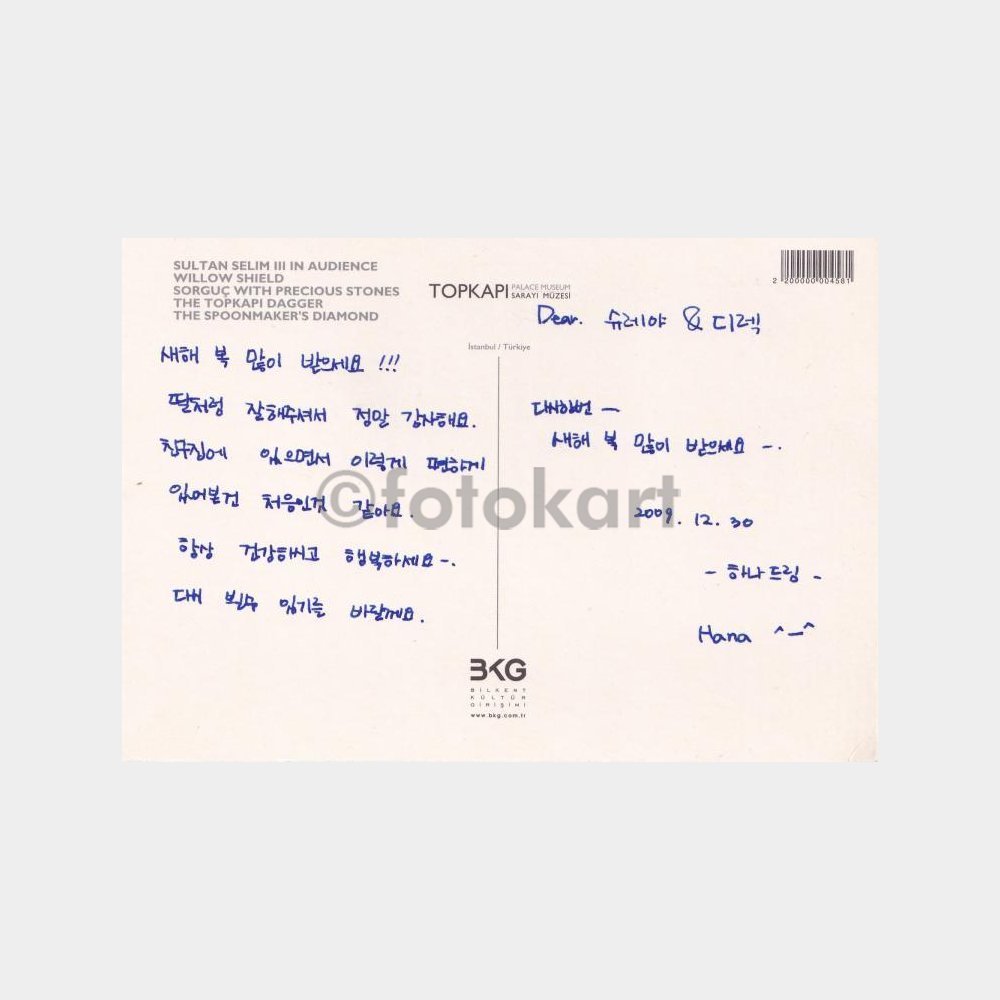 SULTAN SELIM III IN AUDIENCE
WILLOW SHIELD
SORGUÇ WITH PRECIOUS STONES
THE TOPKAPI DAGGER
THE SPOONMAKER'S DIAMOND
TOPKAPI PALACE MUSEUM
SARAYI MÜZESİ
2 200000 004581
İstanbul / Türkiye
새해 복 많이 받으세요 !!!
딸처럼 잘해주셔서 정말 감사해요.
친구집에 있으면서 이렇게 편하게
있어본건 처음인것 같아요.
항상 건강하시고 행복하세요~.
바랄께요.
Dear. 슈레야 & 디렉
다시한번 —
새해 복 많이 받으세요 ~.
2009. 12. 30
- 하나드림 -
Hana ^—^
©fotokart
BKG
BİLKENT
KÜLTÜR
GİRİŞİMİ
www.bkg.com.tr